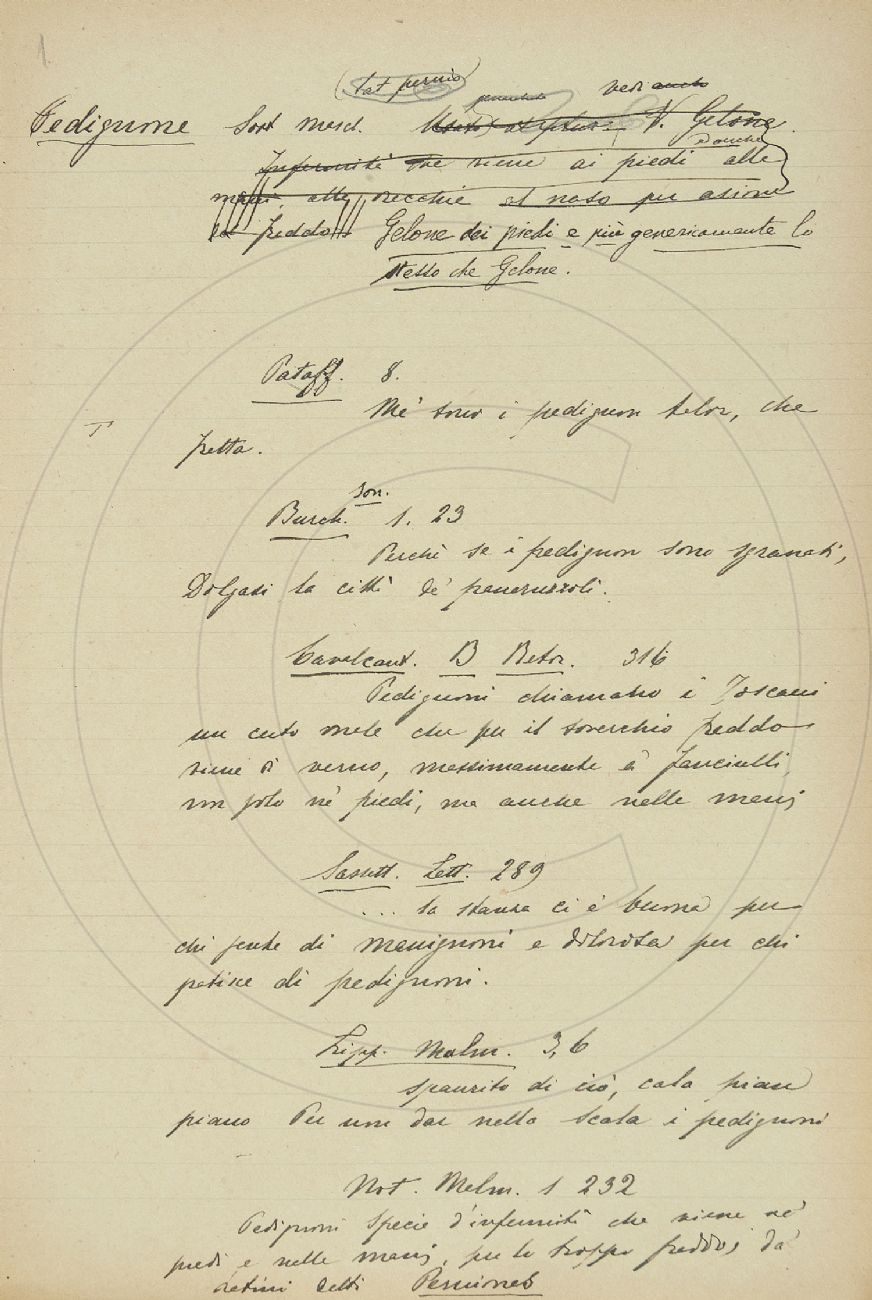 1.
(lat pernio)
Pedignone Sost masch. vedi anche V. Gelone.
ed anche
Infermità che viene ai piedi alle
mani alle orecchie al naso per azione
freddo Gelone dei piedi e più genericamente lo
stesso che Gelone.
Pataff. 8.
Me' sono i pedignon telor, che
fretta.
Son.
Burch. 1. 23
Perchè se i pedignon sono sgranati,
Dolgasi la città de' peneruzzoli.
Cavalcant. B Retor. 316
Pedignoni chiamano i Toscani
un certo male che per il soverchio freddo
viene di verno, massimamente a' fanciulli
non solo ne' piedi, ma anche nelle mani
Sassett. Lett. 289
... la stanza ci è buona per
chi pente di manignoni e dolorosa per chi
patisce di pedignoni.
Lipp. Malm. 3,6
spaurito di ciò, cala pian
piano Per non dar nella scala i pedignoni
Not. Malm. 1 232
Pedignoni Specie d'infermità che viene ne'
piedi e nelle mani, per lo troppo freddo; da'
latini detti Perniones